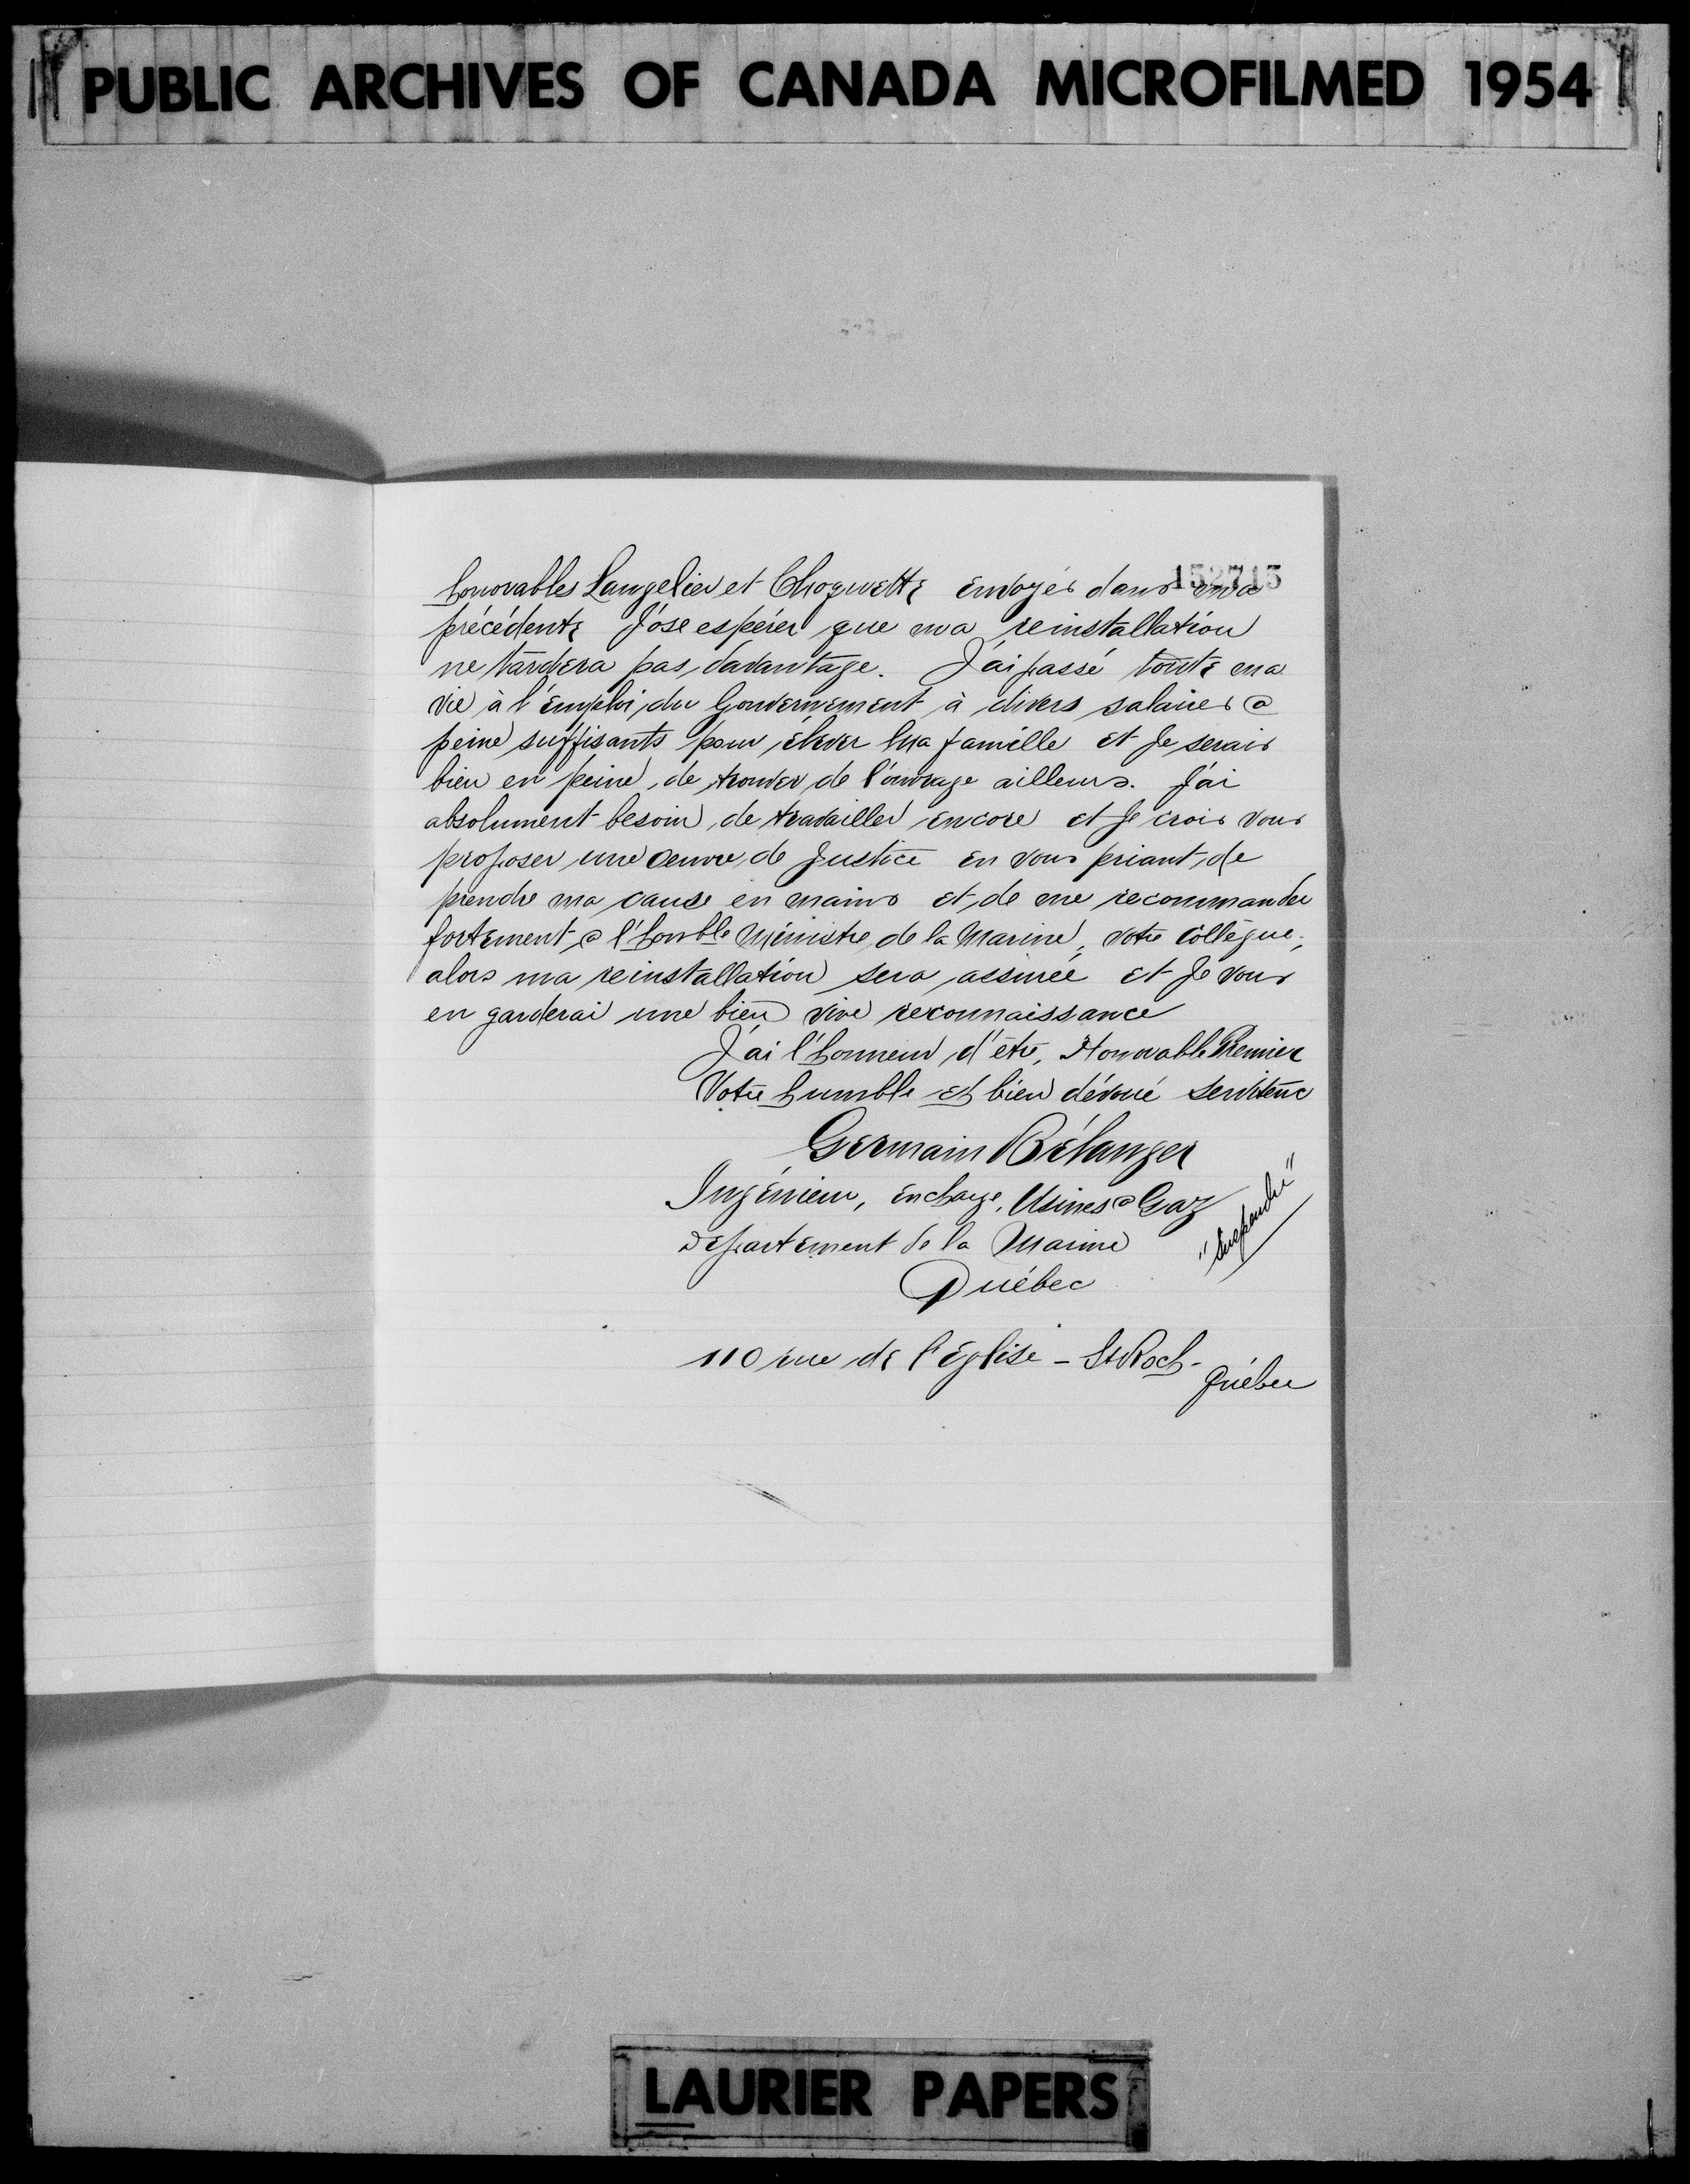 PUBLIC ARCHIVES OF CANADA MICROFILMED 1954
152715
honorables Langelier et Choquette envoyés dans ma
précédente J'ose espérer que ma reinstallation
ne tardera pas davantage. J'ai passé toute ma
vie à l'emploi du Gouvernement à divers salaires @
peine suffisants pour élever ma famille et Je serais
bien en peine de trouver de l'ouvrage ailleurs. J'ai
absolument besoin de travailler encore et Je crois vous
proposer une oeuvre de Justice en vous priant de
prendre ma cause en mains et de me recommander
fortement @ l'honble Ministre de la Marine, votre collègue;
alors ma reinstallation sera assurée et Je vous
en garderai une bien vive reconnaissance
J'ai l'honneur d'être, Honorable Premier
Votre humble et bien dévoué serviteur
Germain Bélanger
Ingénieur, en charge, Usines @ Gaz
"Suspendu"
Département de la Marine
Québec
110 rue de l'Eglise - St Roch -
Québec
LAURIER PAPERS